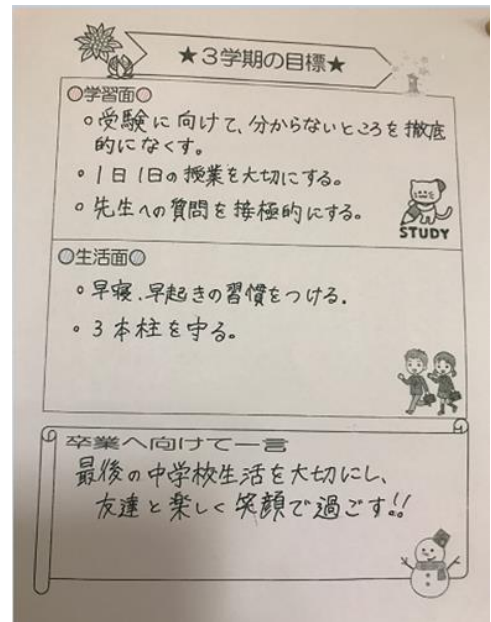 ★3学期の目標★
○学習面○
○受験に向けて、分からないところを撤底
的になくす。
・1日1日の授業を大切にする。
○先生への質問を接極的にする。
STUDY
○生活面○
○早寝.早起きの習慣をつける.
・3本柱を守る。
卒業へ向けて一言
最後の中学校生活を大切にし、
友達と楽しく笑顔で過ごす!!